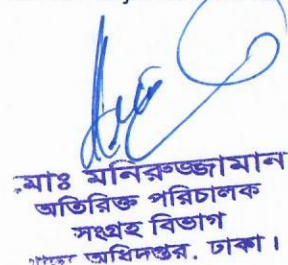 মোঃ মনিরুজ্জামান
অতিরিক্ত পরিচালক
সংগ্রহ বিভাগ
খাদ্য অধিদপ্তর, ঢাকা।